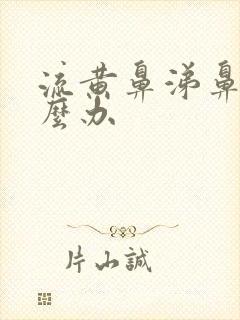 流黄鼻涕鼻
麼办
片山誠